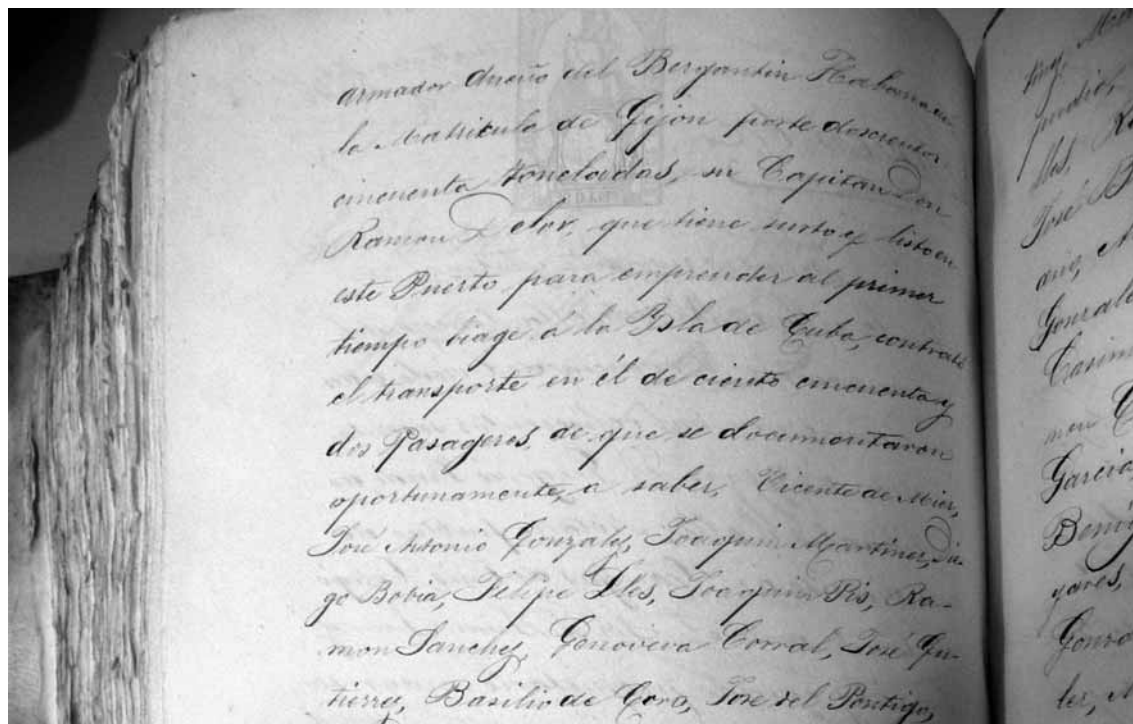 armador dueño del Bergantin Habana de
la Matricula de Gijón porte doscientas
cincuenta toneladas, su Capitan Don
Ramon que tiene surto y listo en
este Puerto para emprender al primer
tiempo biage á la Ysla de Cuba, contrató
el transporte en él de ciento cincuenta y
dos Pasageros, de que se documentaron
oportunamente, a saber, Vicente de Mier,
José Antonio Gonzalez, Joaquin Martinez, Die-
go Bobia, Felipe Joaquin Pis, Ra-
mon Sanchez, Genoveva Corral, José Gu-
tierrez, Basilio de Jose del Pontigo,
José
Gonzale
Garcia,